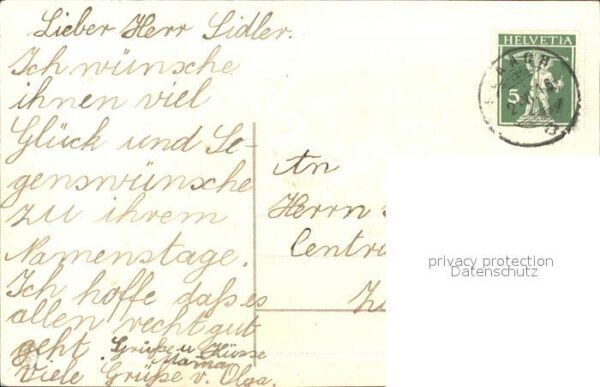 Lieber Herr Sidler.
Ich wünsche
ihnen viel
Glück und Se-
genswünsche
zu ihrem
Namenstage.
Ich hoffe daß es
allen recht gut
geht. Grüße u Küsse
Mama
Viele Grüße v. Olga.
HELVETIA
5
An
Herrn
Centra
privacy protection
Datenschutz